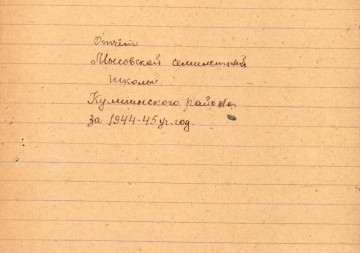 Отчёт
Мысовской семилетней
школы
Куминского района
за 1944-45 уч. год.